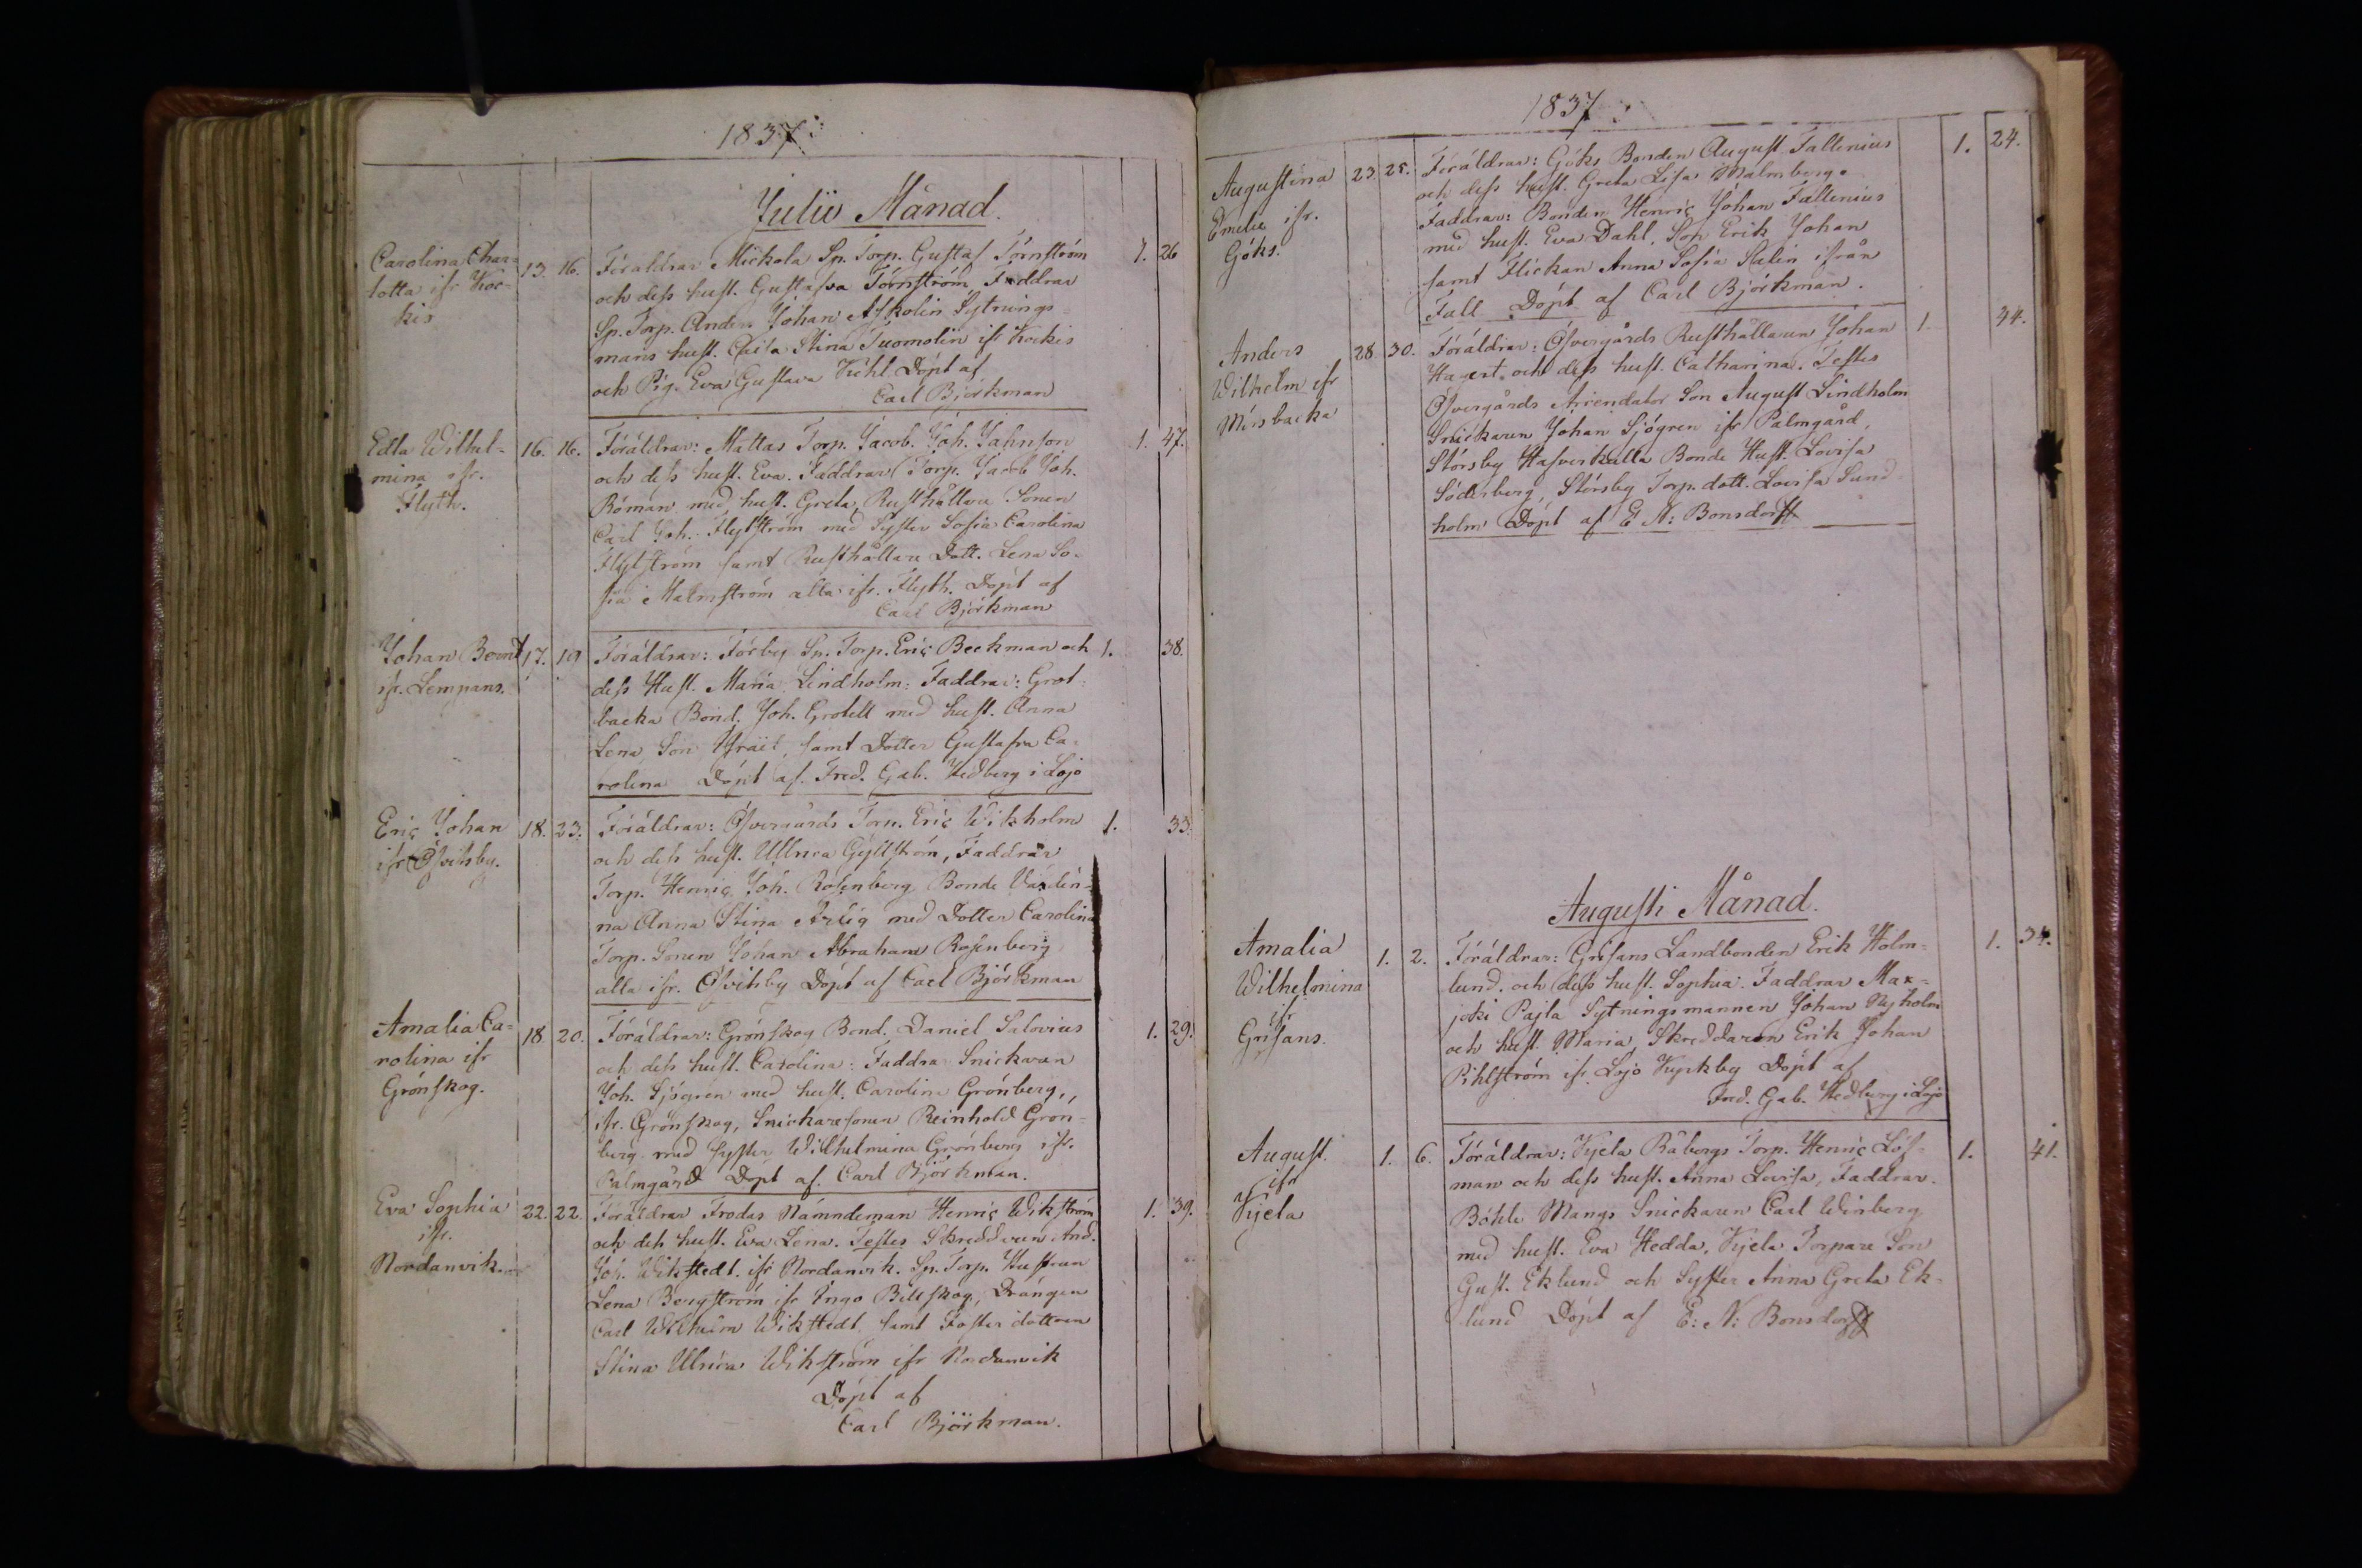 1837:
Julii Månad.
Carolina Char=
lotta ifr Koc=
kis
13. 16.
Föräldrar Mickola Sp. Torp. Gustaf Törnström
och dess hust. Gustafva Törnström, Faddrar
Sp. Torp. Anders Johan Askolin Sytnings=
mans hust. Caisa Stina Tuomolin ifr Kockis
och Pig. Eva Gustava Döpt af
Carl Björkman
1. 26
Edla Wilhel=
mina ifr.
Flyth.
16. 16.
Föräldrar: Mattas Torp. Jacob. Joh. Jahnson
och dess hust. Eva. Faddrar Torp. Jacob Joh.
Röman med hust. Greta, Rusthållare Sonen
Carl Joh. Flytström med Syster Sofia Carolina
Flytström samt Rusthållare Dott. Lena So=
fia Malmström alla ifr. Flyth. Döpt af
Carl Björkman
1. 47.
Johan Bernt
ifr. Lempans.
17. 19
Föräldrar: Förby Sp. Torp. Eric Beckman och
dess Hust. Maria Lindholm: Faddrar: Grot=
backa Bond. Joh. Grotell med hust. Anna
Lena, Son Israël, samt Dotter Gustafva Ca=
rolina Döpt af. Fred. Gab. Hedberg i Lojo
1. 38.
Eric Johan
ifr Övitsby.
18. 23.
Föräldrar: Öfvergårds Torp. Eric Wikholm
och dess hust. Ullrica Gyllström, Faddrar
Torp. Henric Joh. Rosenberg Bonde Värdin=
na Anna Stina Arlig med Dotter Carolina
Torp. Sonen Johan Abraham Rosenberg
alla ifr. Övitsby Döpt af Carl Björkman
1. 33.
Amalia Ca=
rolina ifr
Grönskog.
18. 20.
Föräldrar: Grönskog Bond. Daniel Salovius
och dess hust. Carolina: Faddra Snickaren
Joh. Sjögren med hust. Carolina Grönberg,
ifr. Grönskog, Snickaresonen Reinhold Grön=
berg med syster Wilhelmina Grönberg ifr.
Palmgård Döpt af. Carl Björkman.
1. 29.
Eva Sophia
ifr.
Nordanvik.
22. 22.
Föräldrar Frodas Nämndeman Henric Wikström
och dess hust. Eva Lena. Testes Skreddaren And.
Joh. Wikstedt. ifr Nordanvik. Sp. Torp. Hustrun
Lena Bergström ifr Ingo Billskog, Drängen
Carl Wilhelm Wikstedt samt Foster dottren
Stina Ulrica Wikström ifr Nordanvik
Döpt af
Carl Björkman.
1. 39.
1837:
Augustina
Emelie ifr.
Göks.
23 25.
Föräldrar: Göks Bonden August Fallenius
och dess hust. Greta Lisa Malmberg.
Faddrar: Bonden Henric Johan Fallenius
med hust. Eva Dahl, Son Erik Johan
samt Flickan Anna Sofia Salin ifrån
Fall Döpt af Carl Björkman.
1. 24.
Anders
Wilhelm ifr
Mörsbacka
28 30.
Föräldrar: Öfvergårds Rusthållaren Johan
och dess hust. Catharina. Testes
Öfvergårds Arrendator Son August Lindholm
Snickaren Johan Sjögren ifr Palmgård,
Störsby Hafverkulla Bonde Hust. Lovisa
Söderberg, Störsby Torp. dott. Lovisa Sund
holm Döpt af E N: Bonsdorff
1. 44.
Augusti Månad.
Amalia
Wilhelmina
ifr
Grisans.
1. 2.
Föräldrar: Grisans Landbonden Erik Holm=
lund. och dess hust. Sophia: Faddrar Max=
joki Pajla Sytningsmannen Johan Nyholm
och hust. Maria, Skreddaren Erik Johan
Pihlström ifr. Lojo Kyrkby Döpt af
Fred. Gab. Hedberg i Lojo
1. 34.
August.
ifr
Vjela
1. 6.
Föräldrar: Vjela Råbergs Torp. Henric Löf=
man och dess hust. Anna Lovisa, Faddrar.
Böhle Mangs Snickaren Carl Winberg
med hust. Eva Hedda, Vjela Torpare Son
Gust. Eklund och Syster Anna Greta Ek=
lund Döpt af E: N: Bonsdorff
1. 41.